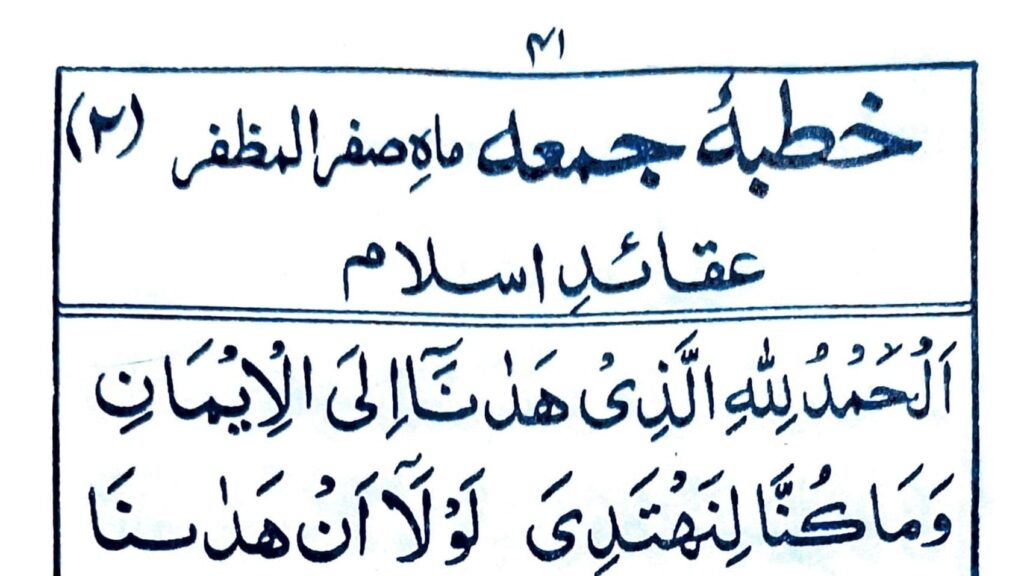 ۴۱
خطبۂ جمعه ماہِ صفر المظفر (۲)
عقائدِ اسلام
اَلْحَمْدُ لِلّٰهِ الَّذِىْ هَدٰنَآ اِلَى الْاِيْمَانِ
وَمَا كُنَّا لِنَهْتَدِىَ لَوْلَآ اَنْ هَدٰىنَا